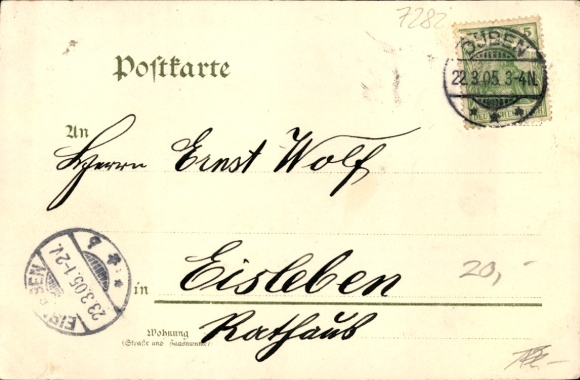 7282
5
DÜBEN
22.3.05. 3-4N.
Postkarte
An
Herrn Ernst Wolf
EISLEBEN
23.3.05. 1-2V.
b
in Eisleben
20,-
Wohnung
(Straße und Hausnummer)
Rathaus